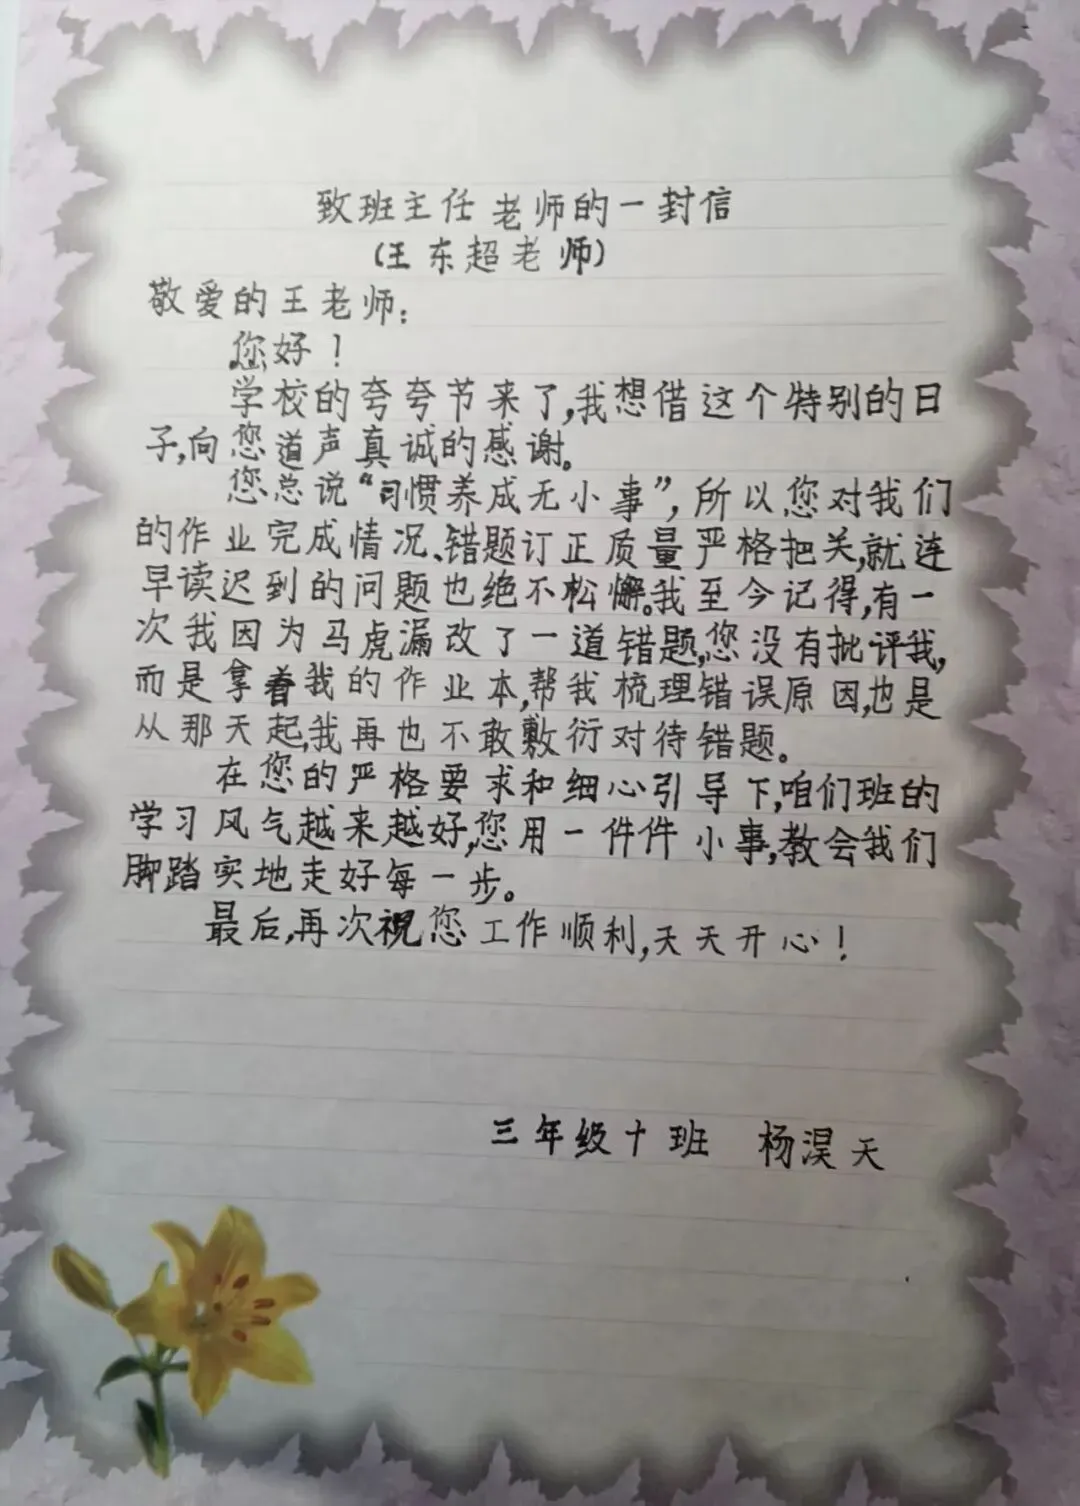 致班主任老师的一封信
(王东超老师)
敬爱的王老师:
您好!
学校的夸夸节来了,我想借这个特别的日
子,向您道声真诚的感谢。
您总说“习惯养成无小事”,所以您对我们
的作业完成情况、错题订正质量严格把关,就连
早读迟到的问题也绝不松懈。我至今记得,有一
次我因为马虎漏改了一道错题,您没有批评我,
而是拿着我的作业本,帮我梳理错误原因,也是
从那天起,我再也不敢敷衍对待错题。
在您的严格要求和细心引导下,咱们班的
学习风气越来越好,您用一件件小事,教会我们
脚踏实地走好每一步。
最后,再次祝您工作顺利,天天开心!
三年级十班 杨淏天